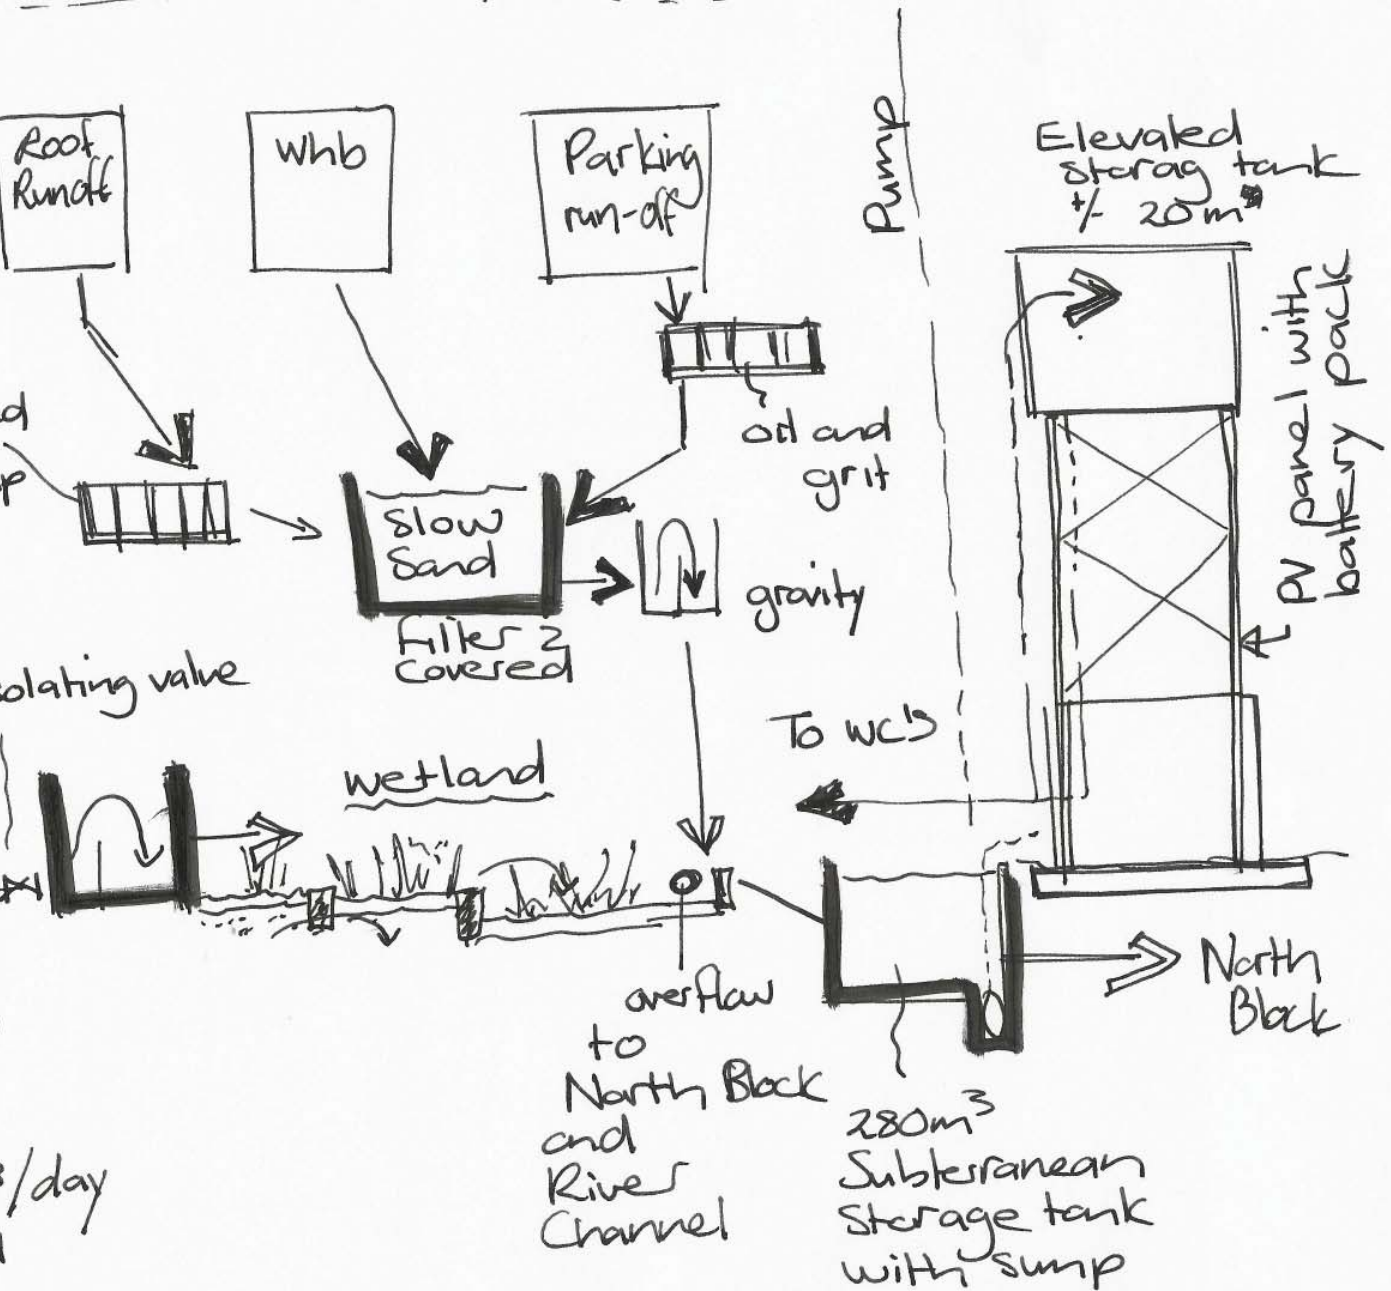 Roof
Runoff
Whb
Parking
run-off
Pump
Elevated
storag tank
+/- 20m³
PV panel with
battery pack
oil and
grit
Slow
Sand
Filter 2
covered
gravity
solating valve
wetland
To WC's
overflow
to
North Block
and
River
Channel
280m³
Subterranean
Storage tank
with sump
North
Block
/day